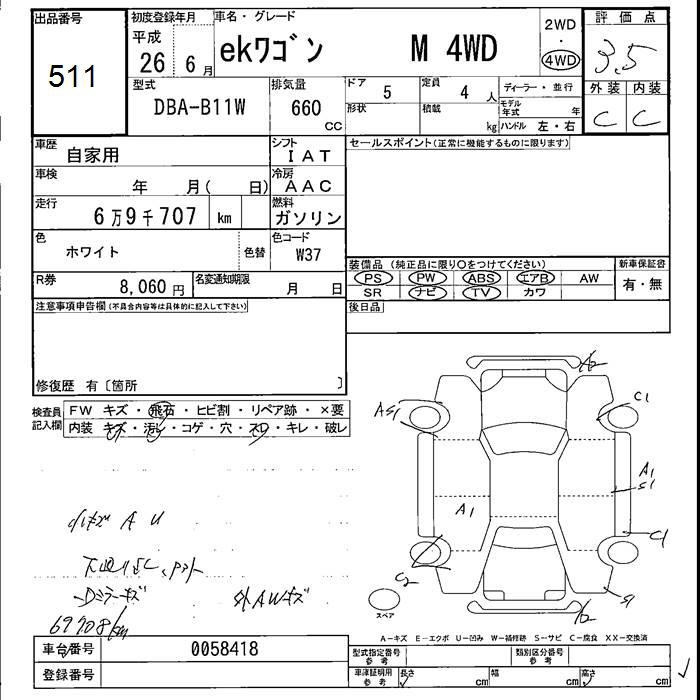 出品番号 初度登録年月 車名・グレード 2WD 評価点
511 平成 26 6月 ekワゴン M 4WD ・ 4WD 3.5
型式 排気量 ドア 5 定員 4人 ディーラー・並行 外装 内装
DBA-B11W 660 cc 形状 積載 kg モデル年式 年 C C
ハンドル 左・右
車歴 自家用 シフト IAT セールスポイント(正常に機能するものに限ります)
車検 年 月( 日) 冷房 AAC
走行 6万9千707 km 燃料 ガソリン
色 ホワイト 色替 色コード W37
装備品(純正品に限り○をつけてください) 新車保証書
R券 8,060円 名変通知期限 月 日 PS PW ABS エアB AW 有・無
SR ナビ TV カワ
注意事項申告欄(不具合内容等は具体的に記入して下さい) 後日品
修復歴 有〔箇所 〕
検査員記入欄 FW キズ・飛石・ヒビ割・リペア跡・×要
内装 キズ・汚レ・コゲ・穴・スレ・キレ・破レ
A2
AS1 C1
A1
S1
A1
C1
C2
S1
A2
スペア
小キズ A U
Dミラーキズ 外AWキズ
69708km
A-キズ E-エクボ U-凹み W-補修跡 S-サビ C-腐食 XX-交換済
車台番号 0058418 型式指定番号 参考 類別区分番号 参考
登録番号 車庫証明用 参考 長さ cm 幅 cm 高さ cm